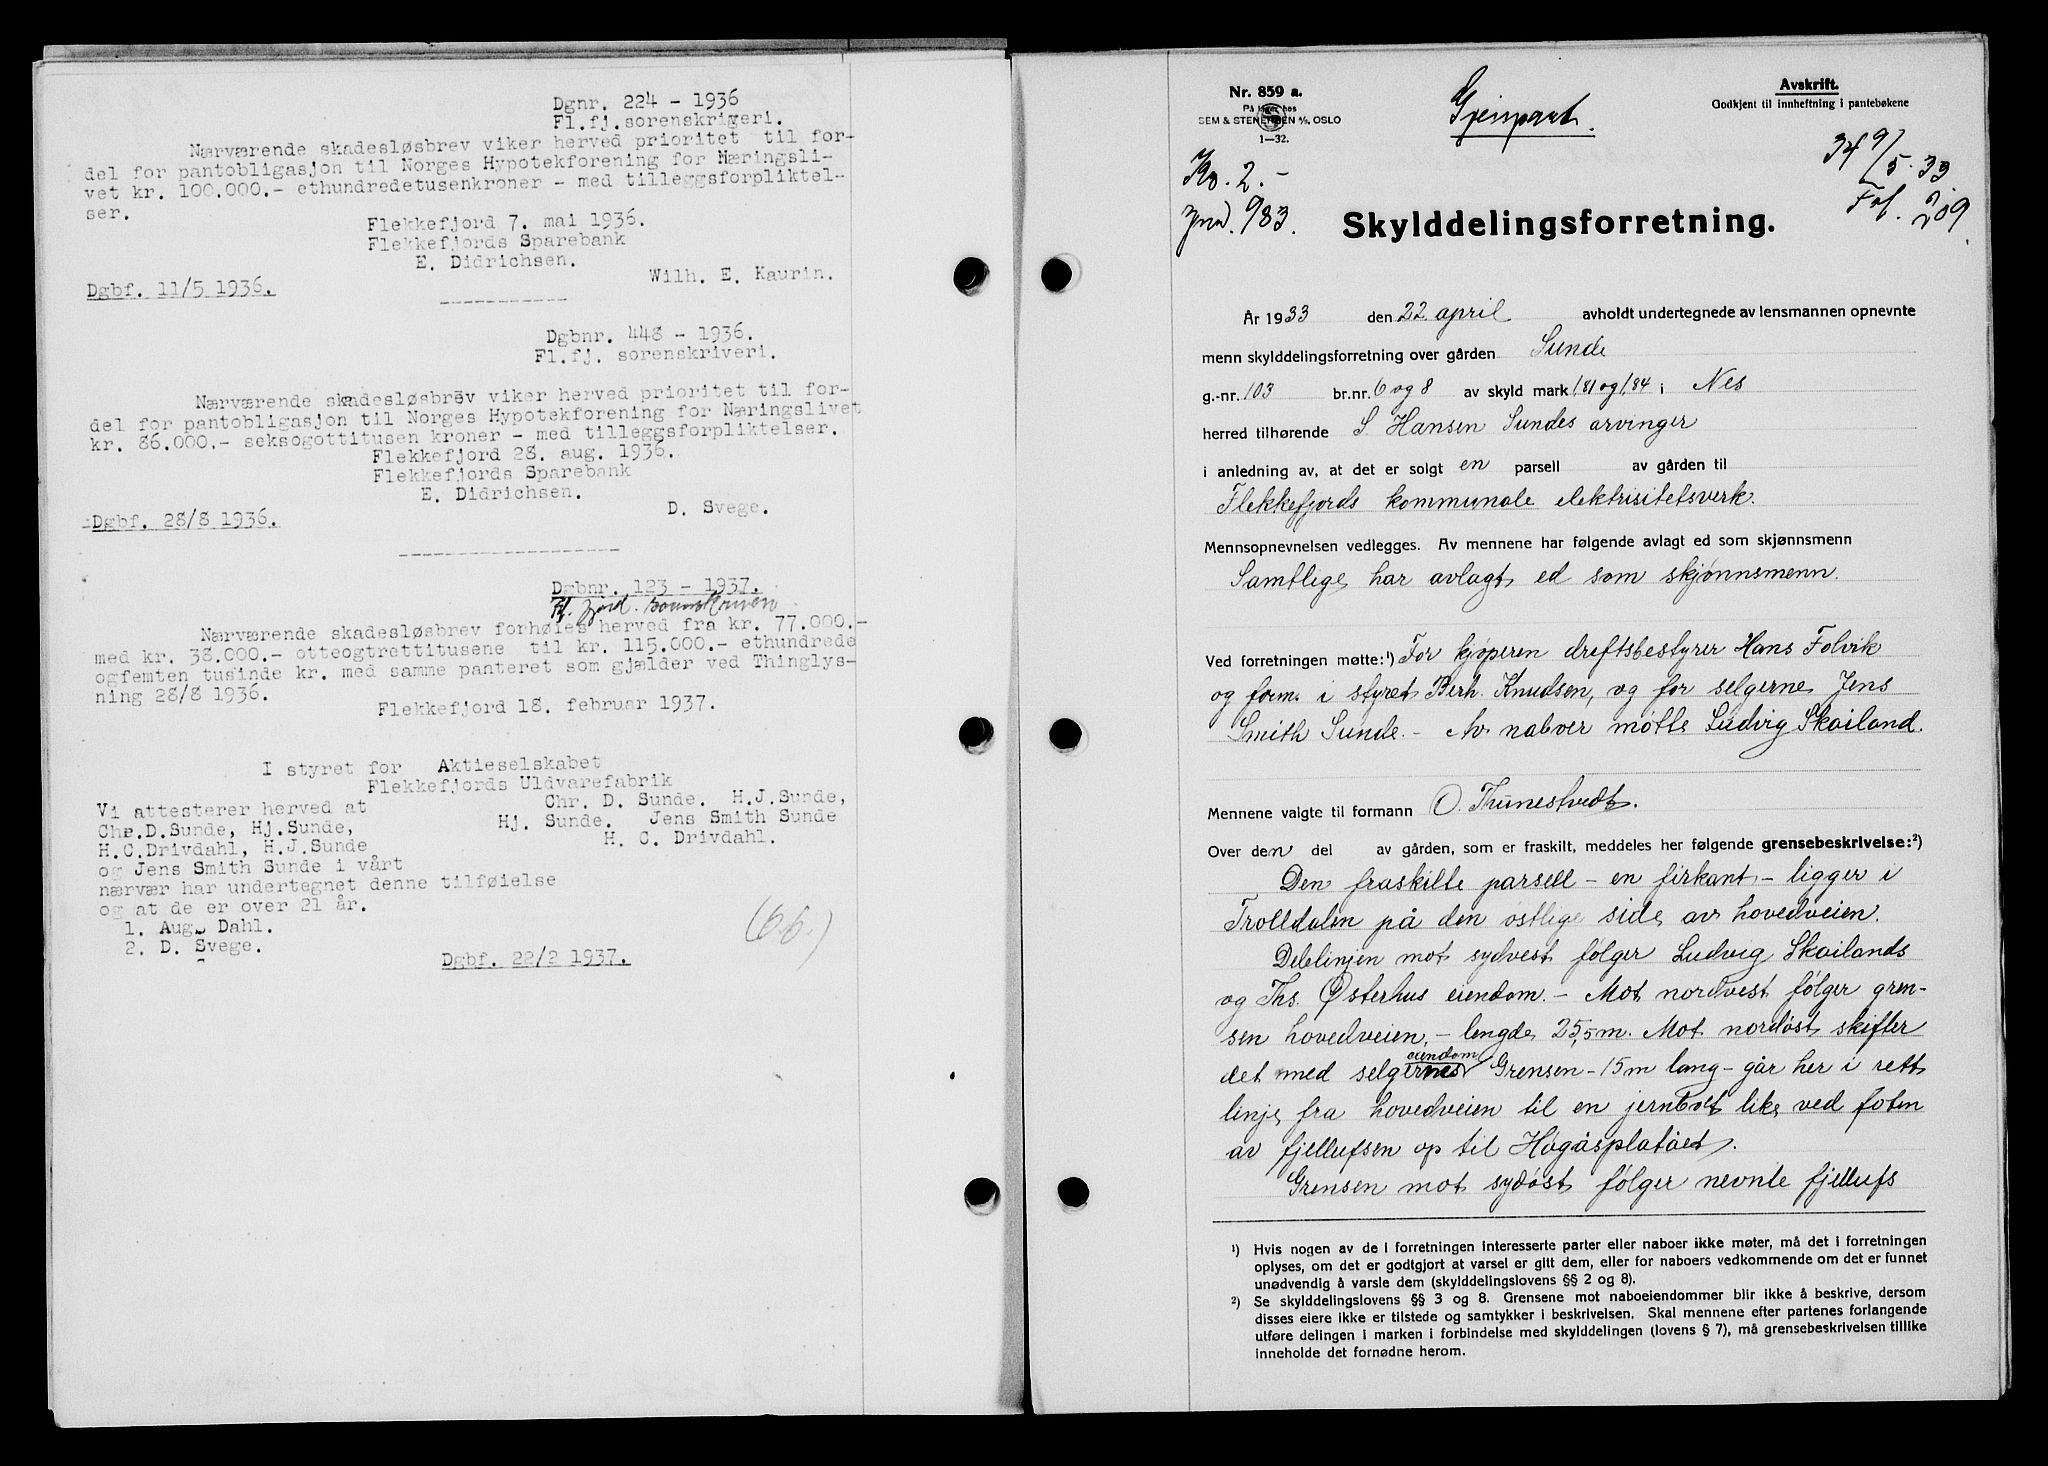 Dgnr. 224 - 1936
Fl.fj.sorenskrigeri.
Nærværende skadesløsbrev viker herved prioritet til for-
del for pantobligasjon til Norges Hypotekforening for Næringsli-
vet kr. 100.000.- ethundredetusenkroner - med tilleggsforpliktel-
ser.
Flekkefjord 7. mai 1936.
Flekkefjords Sparebank
E. Didrichsen.
Wilh. E. Kaurin.
Dgbf. 11/5 1936.
Dgbnr. 448 - 1936.
Fl.fj. sorenskriveri.
Nærværende skadesløsbrev viker herved prioritet til for-
del for pantobligasjon til Norges Hypotekforening for Næringslivet
kr. 86.000.- seksogottitusen kroner - med tilleggsforpliktelser.
Flekkefjord 28. aug. 1936.
Flekkefjords Sparebank
E. Didrichsen.
D. Svege.
Dgbf. 28/8 1936.
Dgbnr. 123 - 1937.
Fl. fjord. sorenskriveri
Nærværende skadesløsbrev forhøies herved fra kr. 77.000.-
med kr. 38.000.- otteogtrettitusene til kr. 115.000.- ethundrede
ogfemten tusinde kr. med samme panteret som gjælder ved Thinglys-
ning 28/8 1936.
Flekkefjord 18. februar 1937.
I styret for Aktieselskabet
Flekkefjords Uldvarefabrik
Vi attesterer herved at
Chr. D. Sunde. H.J.Sunde,
Chr.D.Sunde, Hj.Sunde,
Hj. Sunde. Jens Smith Sunde
H.C.Drivdahl, H.J.Sunde
H. C. Drivdahl.
og Jens Smith Sunde i vårt
nærvær har undertegnet denne tilføielse
og at de er over 21 år.
1. Aug. Dahl.
2. D. Svege.
(66.)
Dgbf. 22/2 1937.
Nr. 859 a.
På lager hos
SEM & STENERSEN A/S, OSLO
1—32.
Gjenpart.
Avskrift.
Godkjent til innheftning i pantebøkene
Kr. 2.-
983.
34 9/5-33
Fol. 209
Skylddelingsforretning.
År 1933 den 22 april avholdt undertegnede av lensmannen opnevnte
menn skylddelingsforretning over gården Sunde
g.-nr. 103 br.nr. 6 og 8 av skyld mark 1,81 og 1,84 i Nes
herred tilhørende S. Hansen Sundes arvinger
i anledning av, at det er solgt en parsell av gården til
Flekkefjords kommunale elektrisitetsverk.
Mennsopnevnelsen vedlegges. Av mennene har følgende avlagt ed som skjønnsmenn
Samtlige har avlagt ed som skjønnsmenn.
Ved forretningen møtte:¹) For kjøperen driftsbestyrer Hans Folvik
og form. i styret Berh. Knudsen, og for selgerne Jens
Smith Sunde. - Av naboer møtte Ludvig Skailand.
Mennene valgte til formann O. Thunestvedt.
Over den del av gården, som er fraskilt, meddeles her følgende grensebeskrivelse:²)
Den fraskilte parsell - en firkant - ligger i
Trolldalen på den østlige side av hovedveien.
Delelinjen mot sydvest følger Ludvig Skailands
og Ths. Østerhus eiendom. - Mot nordvest følger gren-
sen hovedveien, - lengde 25,5 m. Mot nordøst skifter
det med selgernes eiendom Grensen - 15 m lang - går her i rett
linje fra hovedveien til en jernbolt like ved foten
av fjellufsen op til Høgåsplatået.
Grensen mot sydøst følger nevnte fjellufs
¹) Hvis nogen av de i forretningen interesserte parter eller naboer ikke møter, må det i forretningen
oplyses, om det er godtgjort at varsel er gitt dem, eller for naboers vedkommende om det er funnet
unødvendig å varsle dem (skylddelingslovens §§ 2 og 8).
²) Se skylddelingslovens §§ 3 og 8. Grensene mot naboeiendommer blir ikke å beskrive, dersom
disses eiere ikke er tilstede og samtykker i beskrivelsen. Skal mennene efter partenes forlangende
utføre delingen i marken i forbindelse med skylddelingen (lovens § 7), må grensebeskrivelsen tillike
inneholde det fornødne herom.